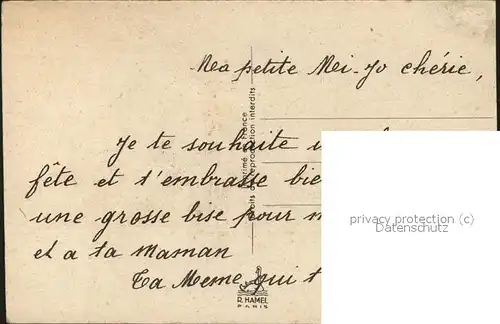 Ma petite Mi-Jo chérie,
Je te souhaite
fête et t'embrasse
une grosse bise pour
et a ta Maman
Ta Meme qui t
Imprimé en France
Droits de reproduction interdits
R. HAMEL
PARIS
privacy protection (c)
Datenschutz